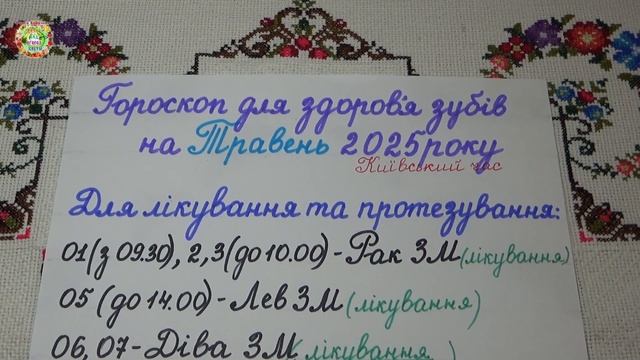 Гороскоп для здоров'я зубів
на Травень 2025 року
Київський час
Для лікування та протезування:
01 (з 09.30), 2, 3 (до 10.00) - Рак ЗМ (лікування)
05 (до 14.00) - Лев ЗМ (лікування)
06, 07 - Діва ЗМ (лікування )